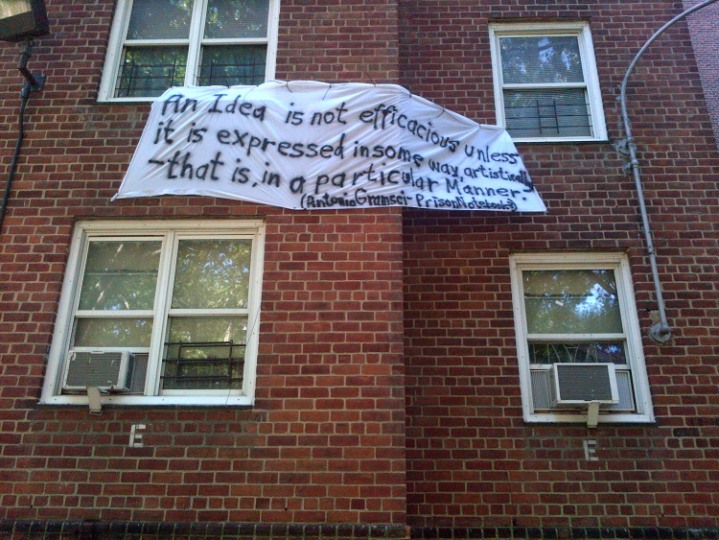 An Idea is not efficacious unless
it is expressed in some way, artistically
-that is, in a particular Manner.
(Antonio Gramsci- Prison Notebooks)
E
E